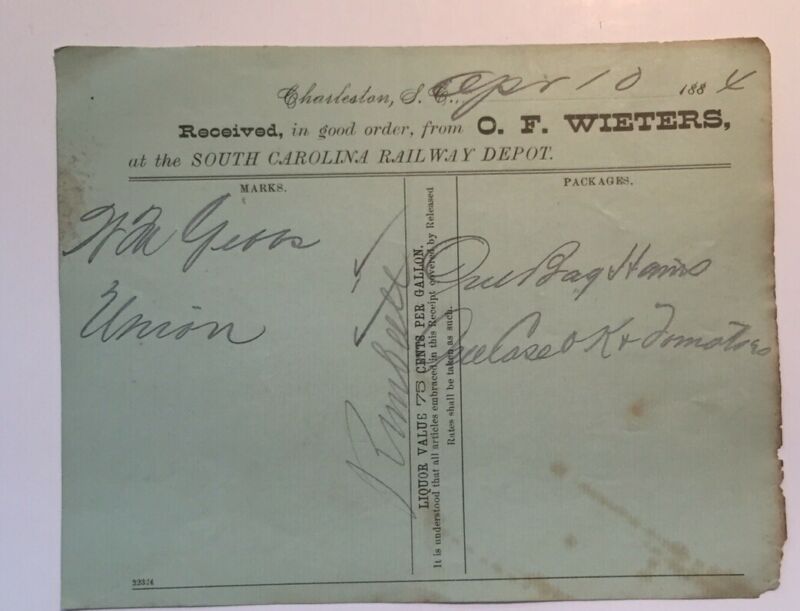 Charleston, S. C., Apr 10 1884
Received, in good order, from O. F. WIETERS,
at the SOUTH CAROLINA RAILWAY DEPOT.
MARKS.
PACKAGES.
Wm
Union
One Bag Hams
One Case O K & Tomatoes
LIQUOR VALUE 75 CENTS PER GALLON.
It is understood that all articles embraced in this Receipt covered by Released
Rates shall be taken as such.
32324